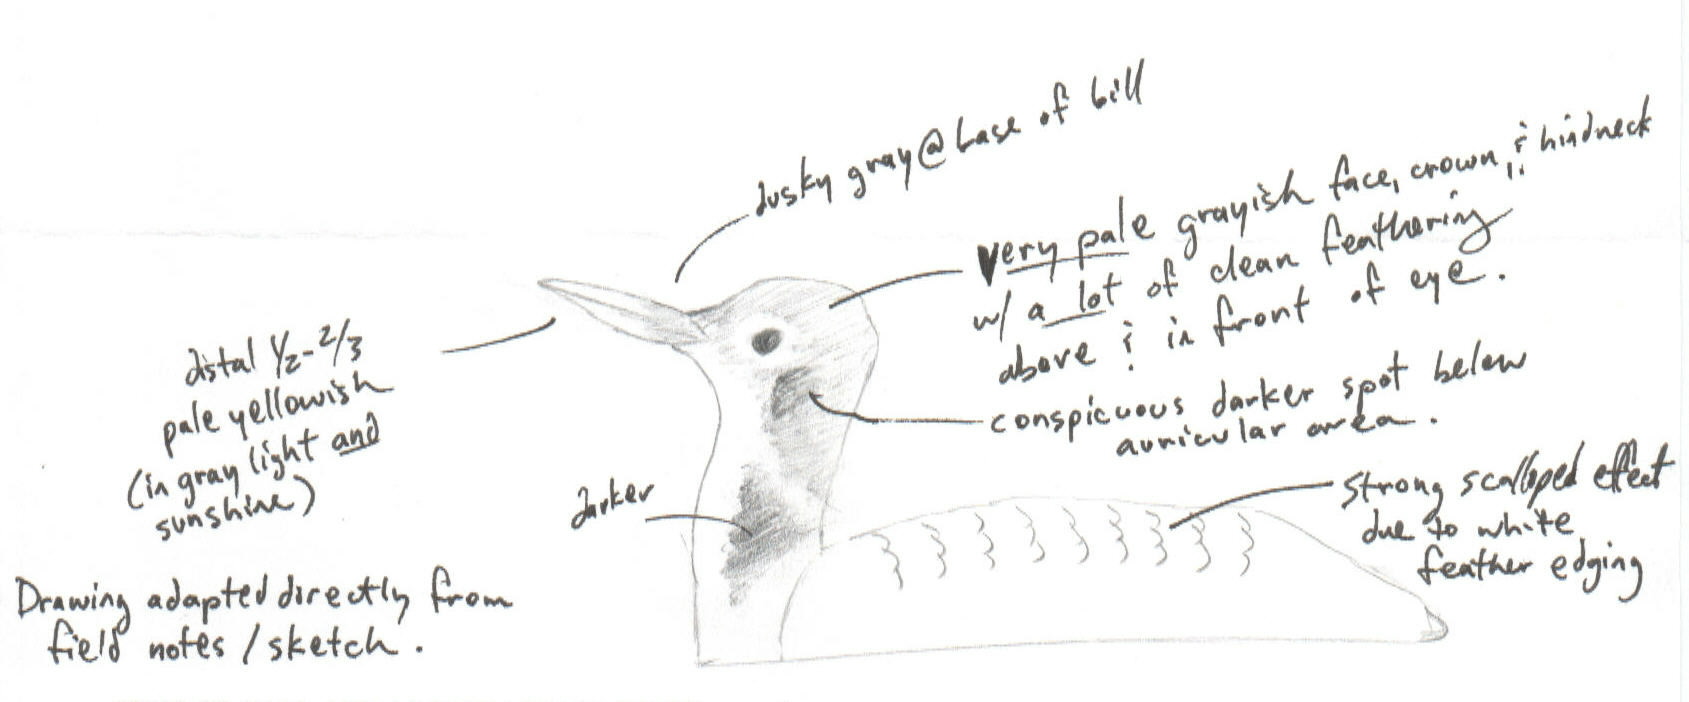 dusky gray @ base of bill
very pale grayish face, crown, & hindneck
w/ a lot of clean feathering
above & in front of eye.
conspicuous darker spot below
auricular area.
strong scalloped effect
due to white
feather edging
distal 1/2-2/3
pale yellowish
(in gray light and
sunshine)
darker
Drawing adapted directly from
field notes / sketch.